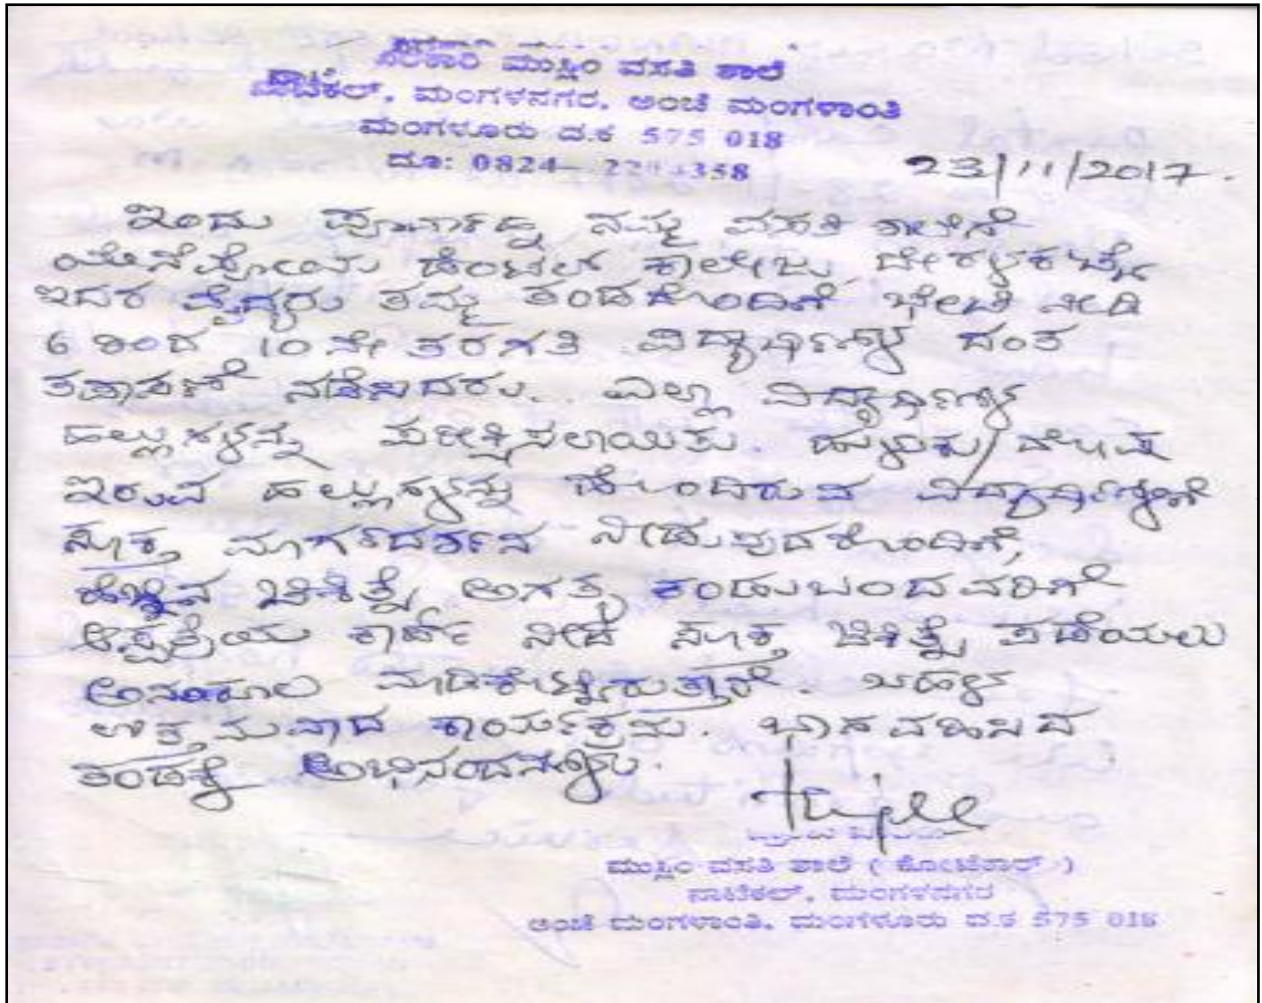 ಸರಕಾರಿ ಮುಸ್ಲಿಂ ವಸತಿ ಶಾಲೆ
ನಾಟೆಕಲ್, ಮಂಗಳನಗರ, ಅಂಚೆ ಮಂಗಳಾಂತಿ
ಮಂಗಳೂರು ದ.ಕ 575 018
ದೂ: 0824-
23/11/2017.
ಇಂದು ಪೂರ್ವಾಹ್ನ ನಮ್ಮ ವಸತಿ ಶಾಲೆಗೆ
ಯೆನೆಪೋಯ ಡೆಂಟಲ್ ಕಾಲೇಜು ದೇರಳಕಟ್ಟೆ
ಇದರ ವೈದ್ಯರು ತಮ್ಮ ತಂಡದೊಂದಿಗೆ ಭೇಟಿ ನೀಡಿ
6 ರಿಂದ 10 ನೇ ತರಗತಿ ವಿದ್ಯಾರ್ಥಿಗಳ ದಂತ
ತಪಾಸಣೆ ನಡೆಸಿದರು. ಎಲ್ಲಾ ವಿದ್ಯಾರ್ಥಿಗಳ
ಹಲ್ಲುಗಳನ್ನು ಪರೀಕ್ಷಿಸಲಾಯಿತು. ಹುಳುಕು/
ಇರುವ ಹಲ್ಲುಗಳನ್ನು ಹೊಂದಿರುವ ವಿದ್ಯಾರ್ಥಿಗಳಿಗೆ
ಸೂಕ್ತ ಮಾರ್ಗದರ್ಶನ ನೀಡುವುದರೊಂದಿಗೆ,
ಹೆಚ್ಚಿನ ಚಿಕಿತ್ಸೆ ಅಗತ್ಯ ಕಂಡುಬಂದವರಿಗೆ
ಆಸ್ಪತ್ರೆಯ ಕಾರ್ಡ್ ನೀಡಿ ಸೂಕ್ತ ಚಿಕಿತ್ಸೆ ಪಡೆಯಲು
ಅನುಕೂಲ ಮಾಡಿಕೊಟ್ಟಿರುತ್ತಾರೆ. ಬಹಳ
ಉತ್ತಮವಾದ ಕಾರ್ಯಕ್ರಮ. ಭಾಗವಹಿಸಿದ
ತಂಡಕ್ಕೆ ಅಭಿನಂದನೆಗಳು.
ಮುಸ್ಲಿಂ ವಸತಿ ಶಾಲೆ ( ಕೋಟೆಕಾರ್ )
ನಾಟೆಕಲ್, ಮಂಗಳನಗರ
ಅಂಚೆ ಮಂಗಳಾಂತಿ, ಮಂಗಳೂರು ದ.ಕ 575 018